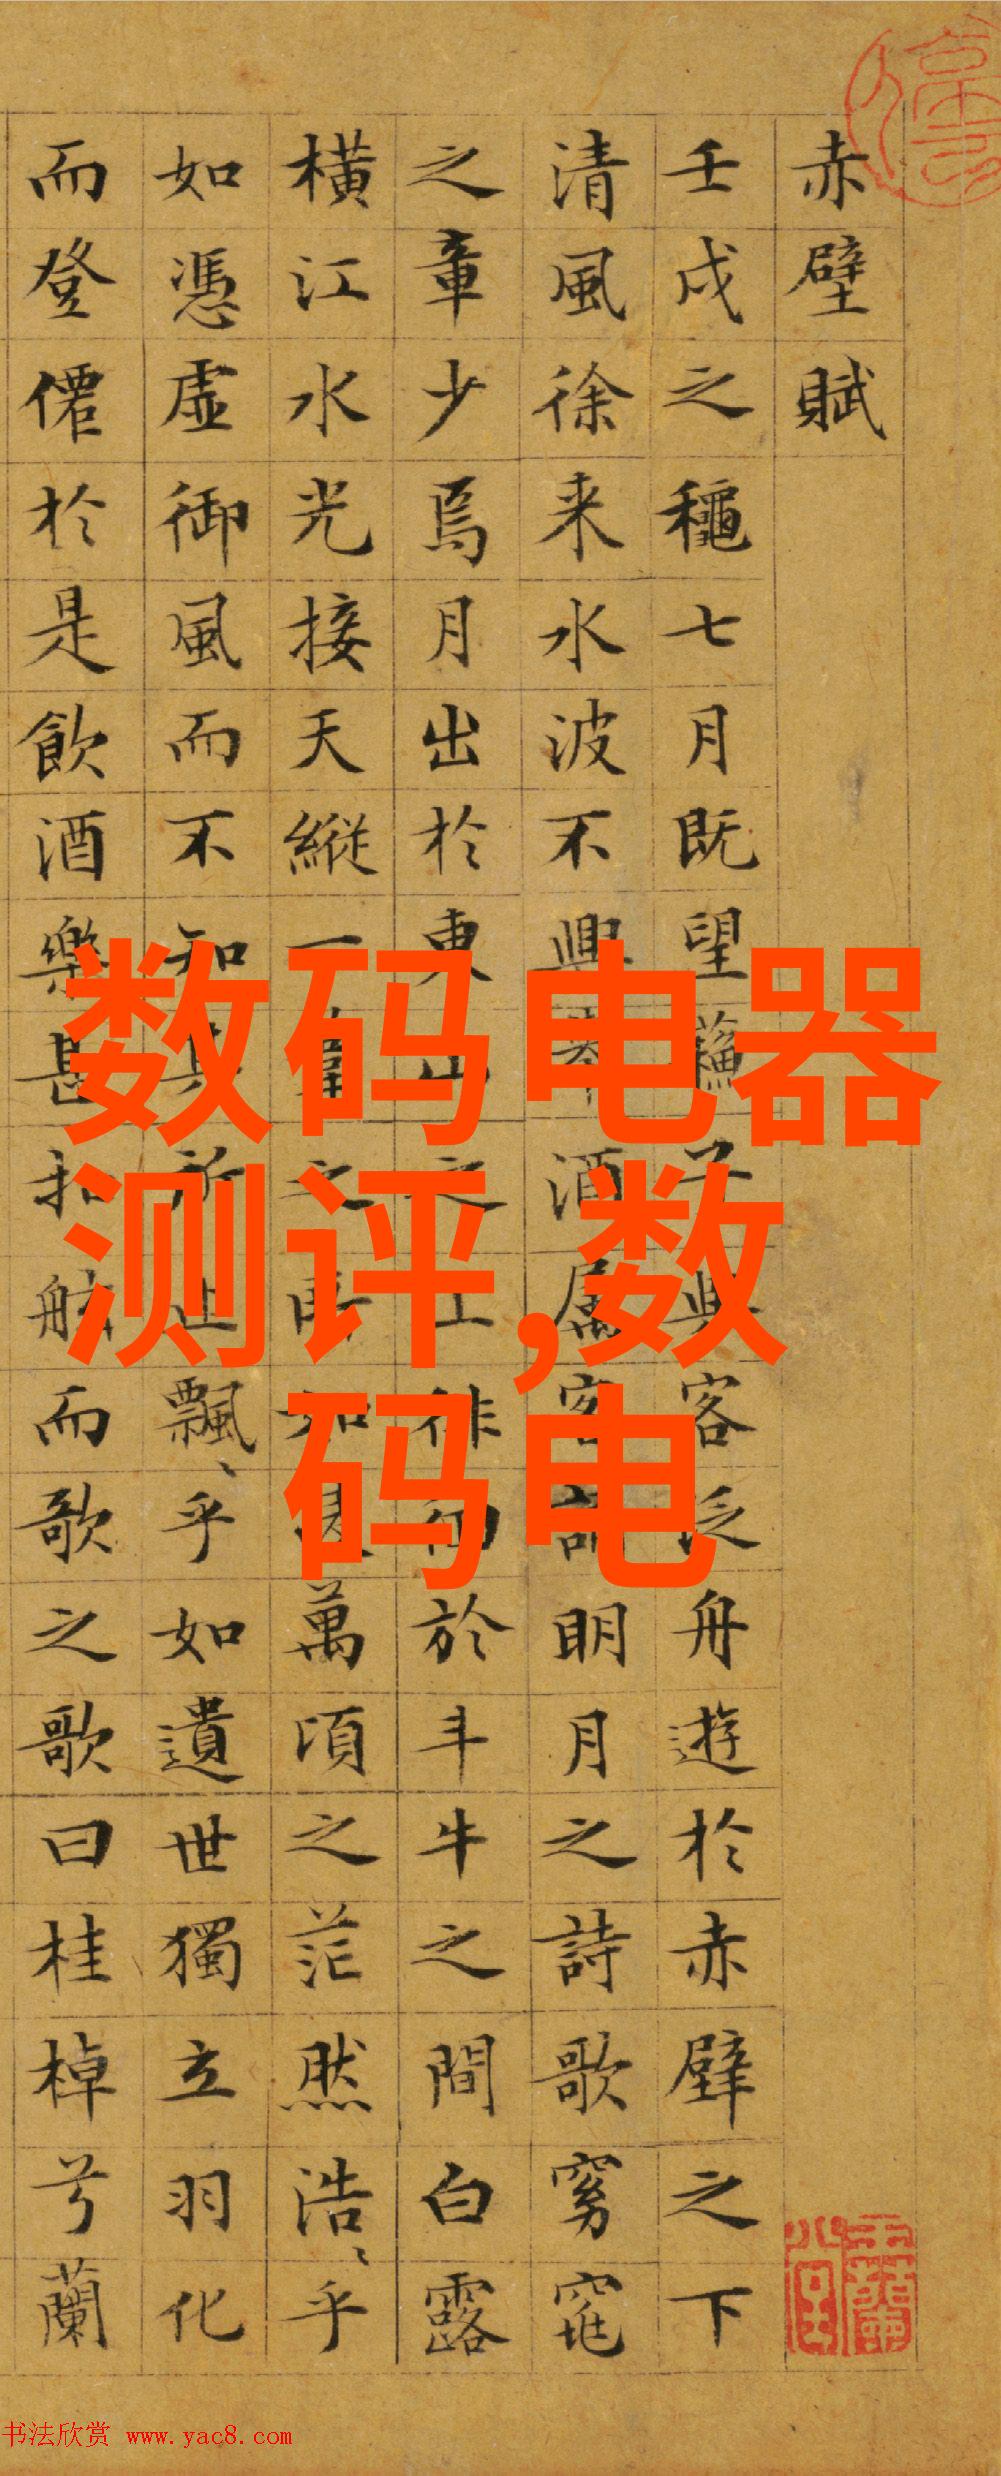 赤壁賦
壬戌之穐七月既望蘓子與客泛舟遊於赤壁之下
清風徐来水波不興舉酒属客誦明月之詩歌窈窕
之章少焉月出於東山之上徘徊於斗牛之間白露
橫江水光接天縱一葦之所如凌萬頃之茫然浩〻乎
如憑虛御風而不知其所止飄〻乎如遺世獨立羽化
而登僊於是飲酒樂甚扣舷而歌之歌曰桂棹兮蘭
数码电器
测评,数
码电
书法欣赏 www.yac8.com